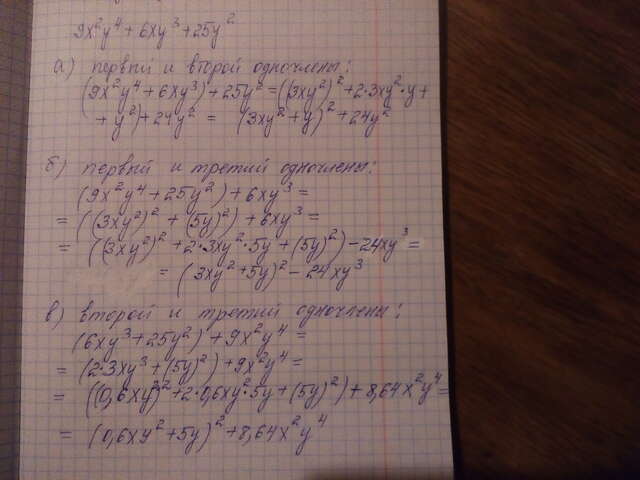 9x²y⁴ + 6xy³ + 25y²
а) первый и второй одночлены:
(9x²y⁴ + 6xy³) + 25y² = ((3xy²)² + 2·3xy²·y +
+ y²) + 24y² = (3xy² + y)² + 24y²
б) первый и третий одночлены:
(9x²y⁴ + 25y²) + 6xy³ =
= ((3xy²)² + (5y)²) + 6xy³ =
= ((3xy²)² + 2·3xy²·5y + (5y)²) - 24xy³ =
= (3xy² + 5y)² - 24xy³
в) второй и третий одночлены:
(6xy³ + 25y²) + 9x²y⁴ =
= (2·3xy³ + (5y)²) + 9x²y⁴ =
= ((0,6xy²)² + 2·0,6xy²·5y + (5y)²) + 8,64x²y⁴ =
= (0,6xy² + 5y)² + 8,64x²y⁴